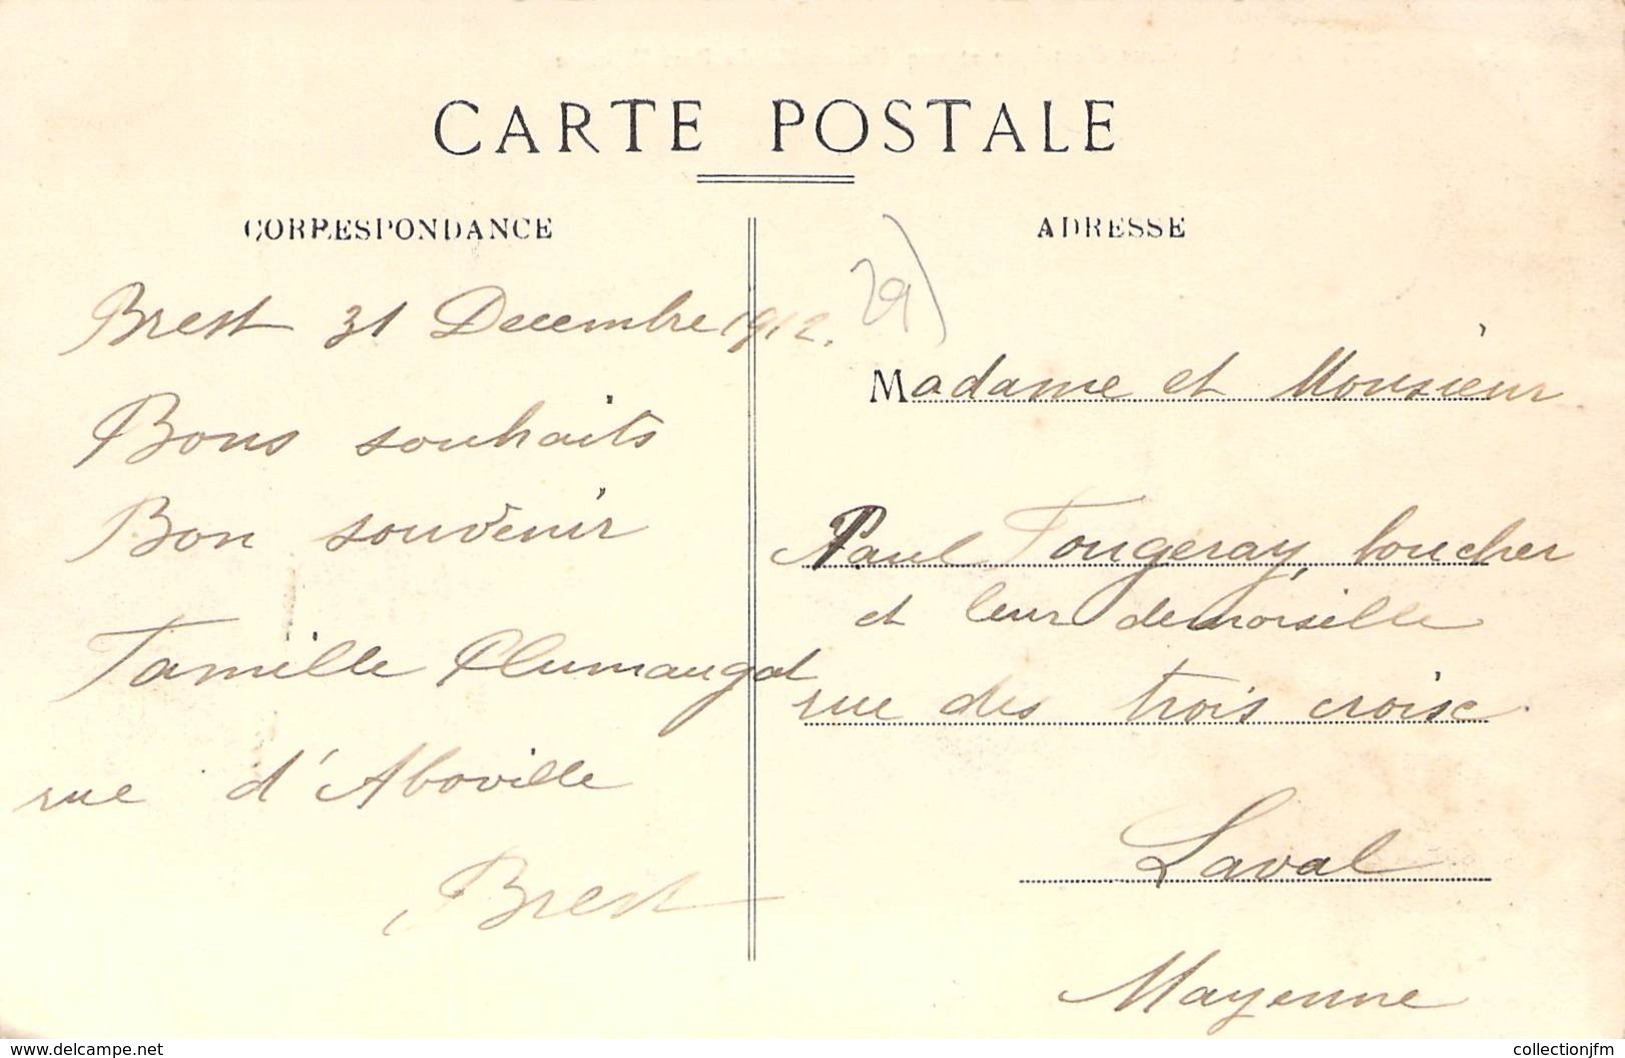 CARTE POSTALE
CORRESPONDANCE
Brest 31 Decembre 1912.
Bons souhaits
Bon souvenir
Famille Plumaugat
rue d'Aboville
Brest
29)
ADRESSE
Madame et Monsieur
Paul Fougeray, boucher
et leur demoiselle
rue des trois croise
Laval
Mayenne
www.delcampe.net
collectionjfm